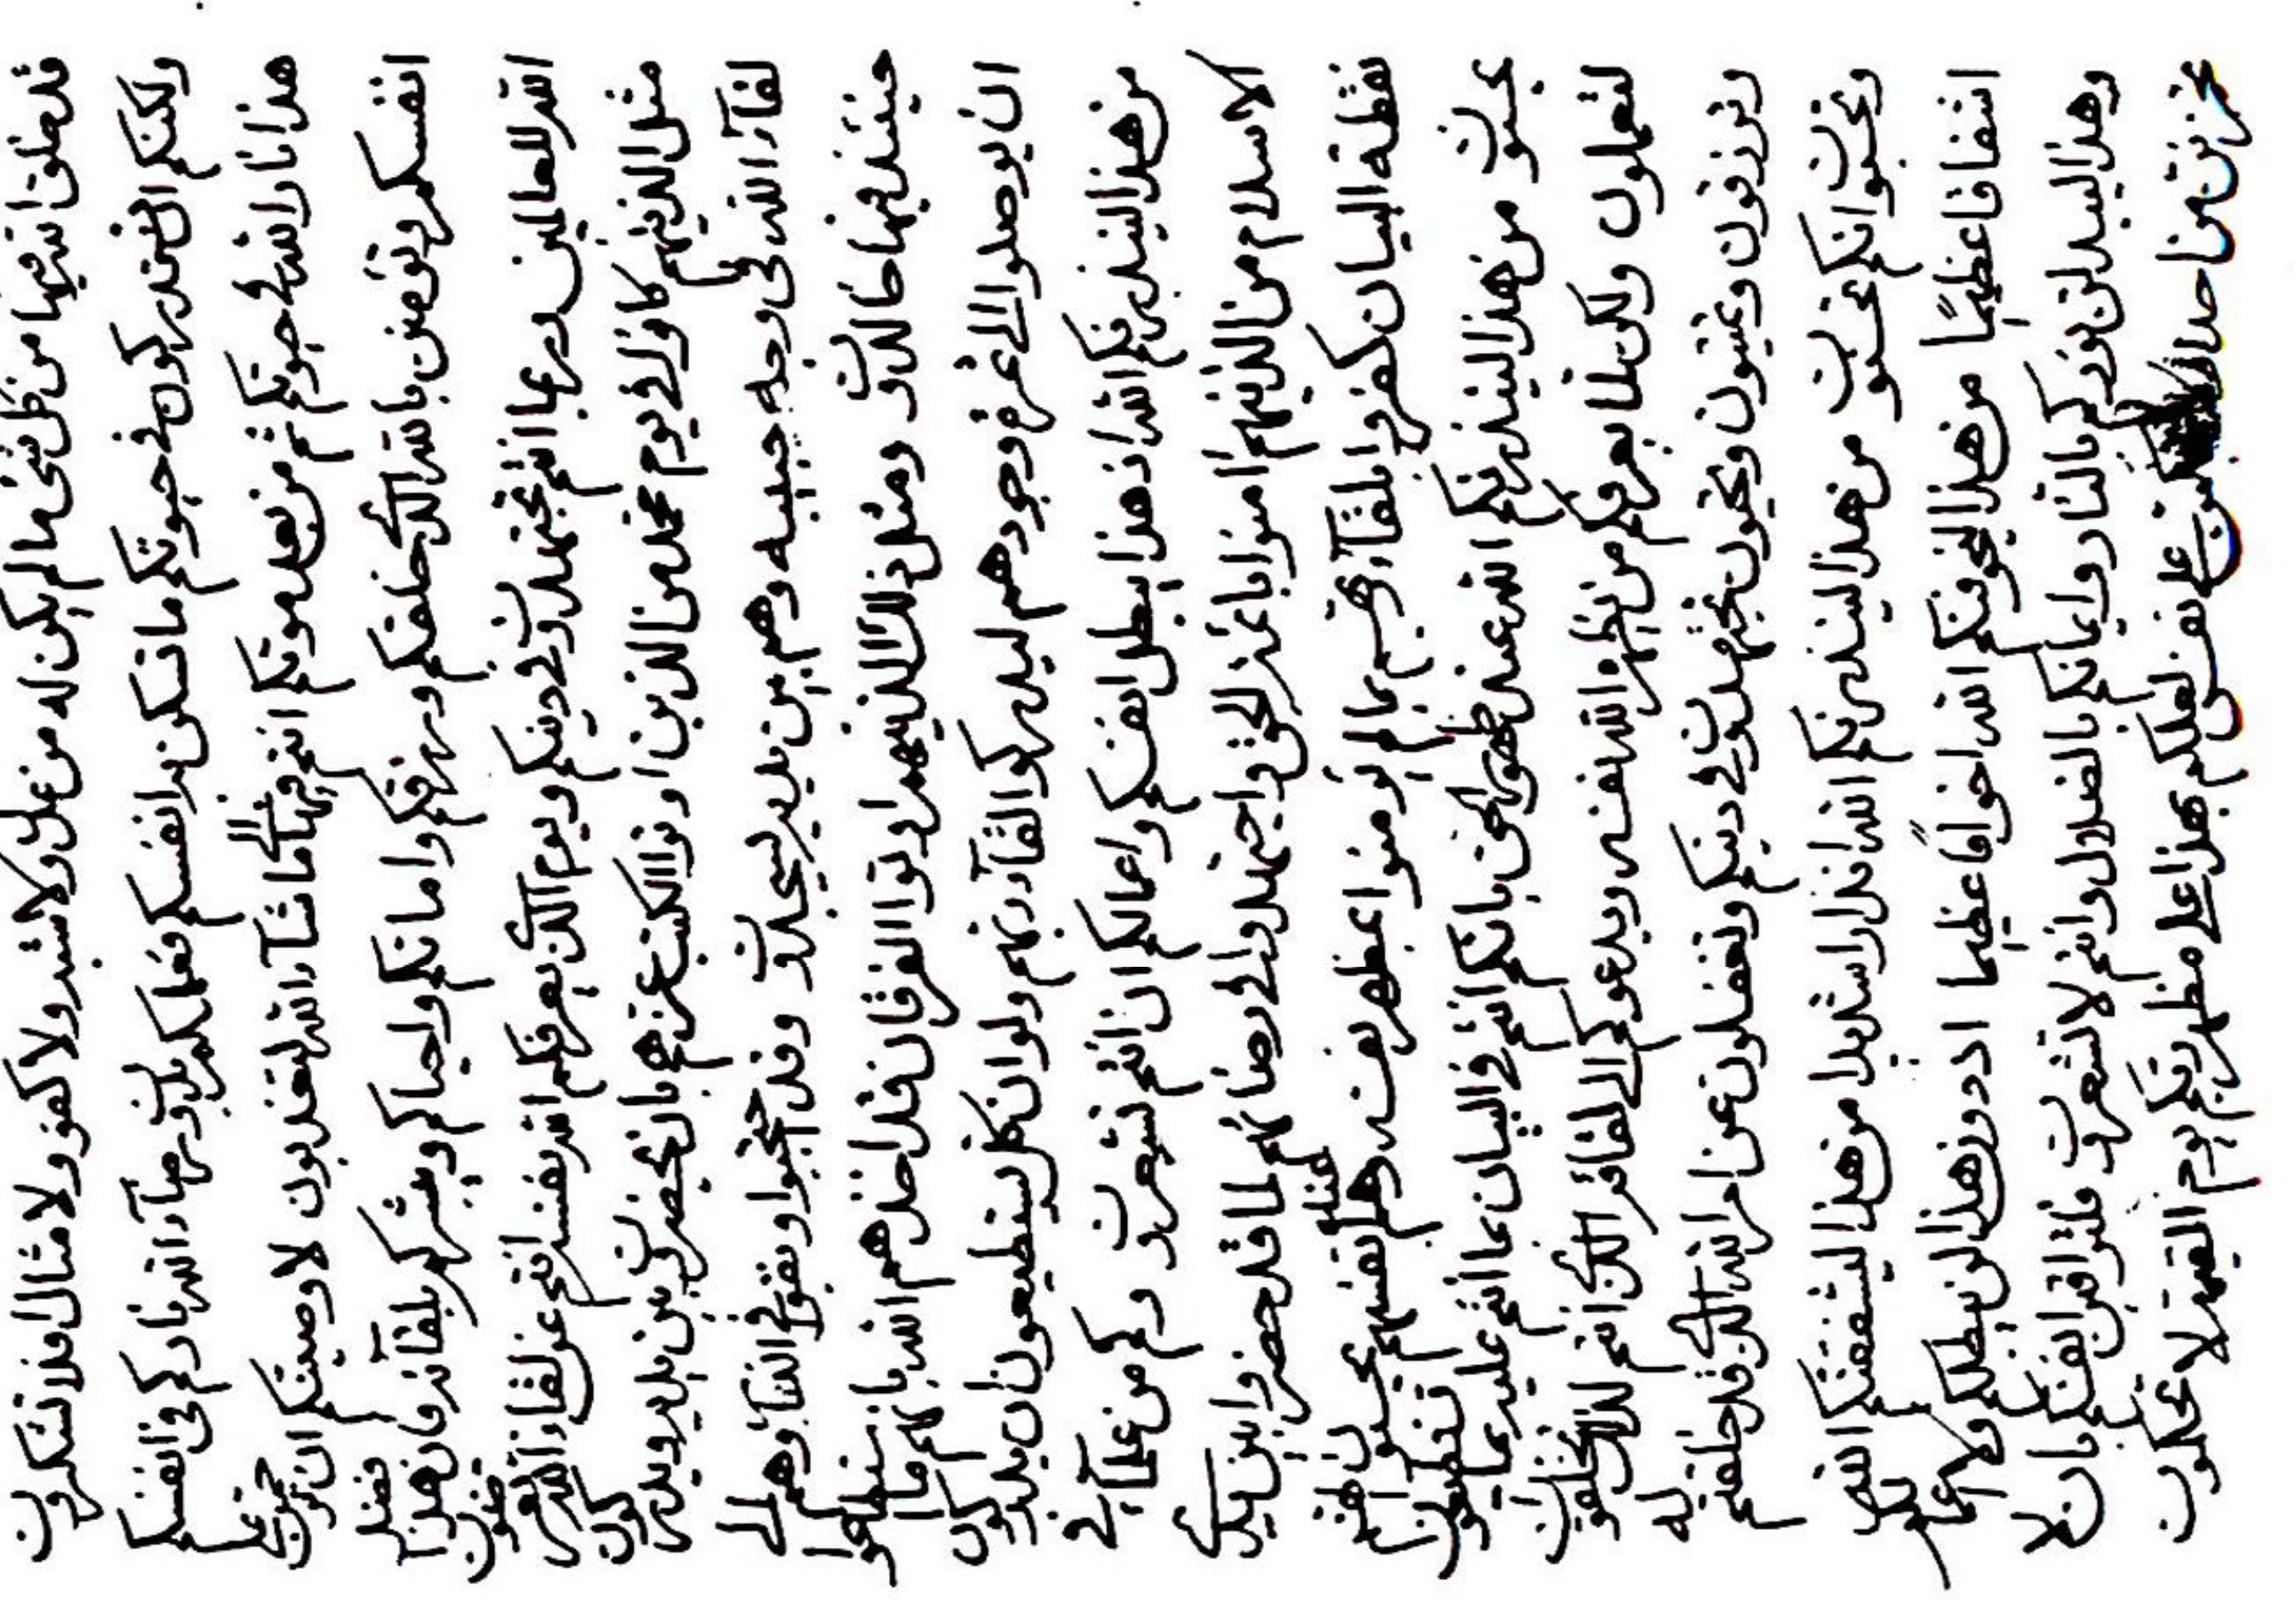 قد خلق الله فيها من كل شئ ما لم يكن له من عدل ولا شبه ولا كفو ولا مثال افلا تشكرون
ولكنكم في حيوتكم ما تسكنن به انفسكم فعلكم تدركون رضاء الله باركم في انفسكم
هذا نار الله في حيوتكم ثم من بعد موتكم انتم فيها الى ما شاء الله لتعذبون لاوصيتكم ان ترحمون على
انفسكم وتؤمنن بالله الذي خلقكم ورزقكم واماتكم واحياكم ويبشركم بلقائه فان هذا فضل
الله للعالمين انتم تجتهدون في دينكم ويوم الذي يعرفكم الله نفسه انتم عن لقاء الله معرضون
مثل الذينهم كانوا في يوم محمد من الذين اوتوا الكتب عزهم بان يحضرون بين يديه ويدركون
لقاء الله في وجه حبيبه وهم بين يديه يسجدون وقد احتجبوا وبقوا في النار وهم الى
حينئذ فيها خالدون ومثل ذلك الذينهم اوتوا الفرقان قد اخذهم الله بانهم ما استطاعوا
ان يوصلوا الى عز وجودهم ليدركوا لقاء ربهم ولو ان كل يستطيعون ان يدركون
من هذا لينذرنكم الله ان هذا يبطل انفسكم واعمالكم ان انتم تشعرون وكم من علماء في
الاسلام من الذينهم امنوا باعز الحق واجتهدوا في رضائه لما قد حضروا بين يدي
نقطة البيان كفروا بلقاء ربهم بما لم يؤمنوا بمظهر نفسه وهم عند انفسهم محسنون
من هذا لينذرنكم الله عند ظهور الحق بانكم انتم في البيان بما انتم عليه بما تستطيعون
لتعملون ولكن لما يعرفكم من يظهره الله نفسه ويدعوكم الى لقائه الذي انتم لذلك تخلقون
وترزقون وتميتون وتحيون تجتهدون في دينكم وتغفلون عن امر الله الذي قد خلقتم له
وتحسبون انكم محسنون من هذا لينذرنكم الله انذارا شديدا من هذا ليشفقنكم الله
اشفاقا عظيما من هذا ليخوفنكم الله اخوافا عظيما اذ دون هذا لن يبطلكم ولا اعمالكم
وهذا ليبدلن نوركم بالنار وايمانكم بالضلال وانتم لا تشعرون فلتراقبن انفسكم بان لا
تحزنن من احد على نفس لعلكم بهذا على مظهر ربكم يوم القيمة لا تحكمون